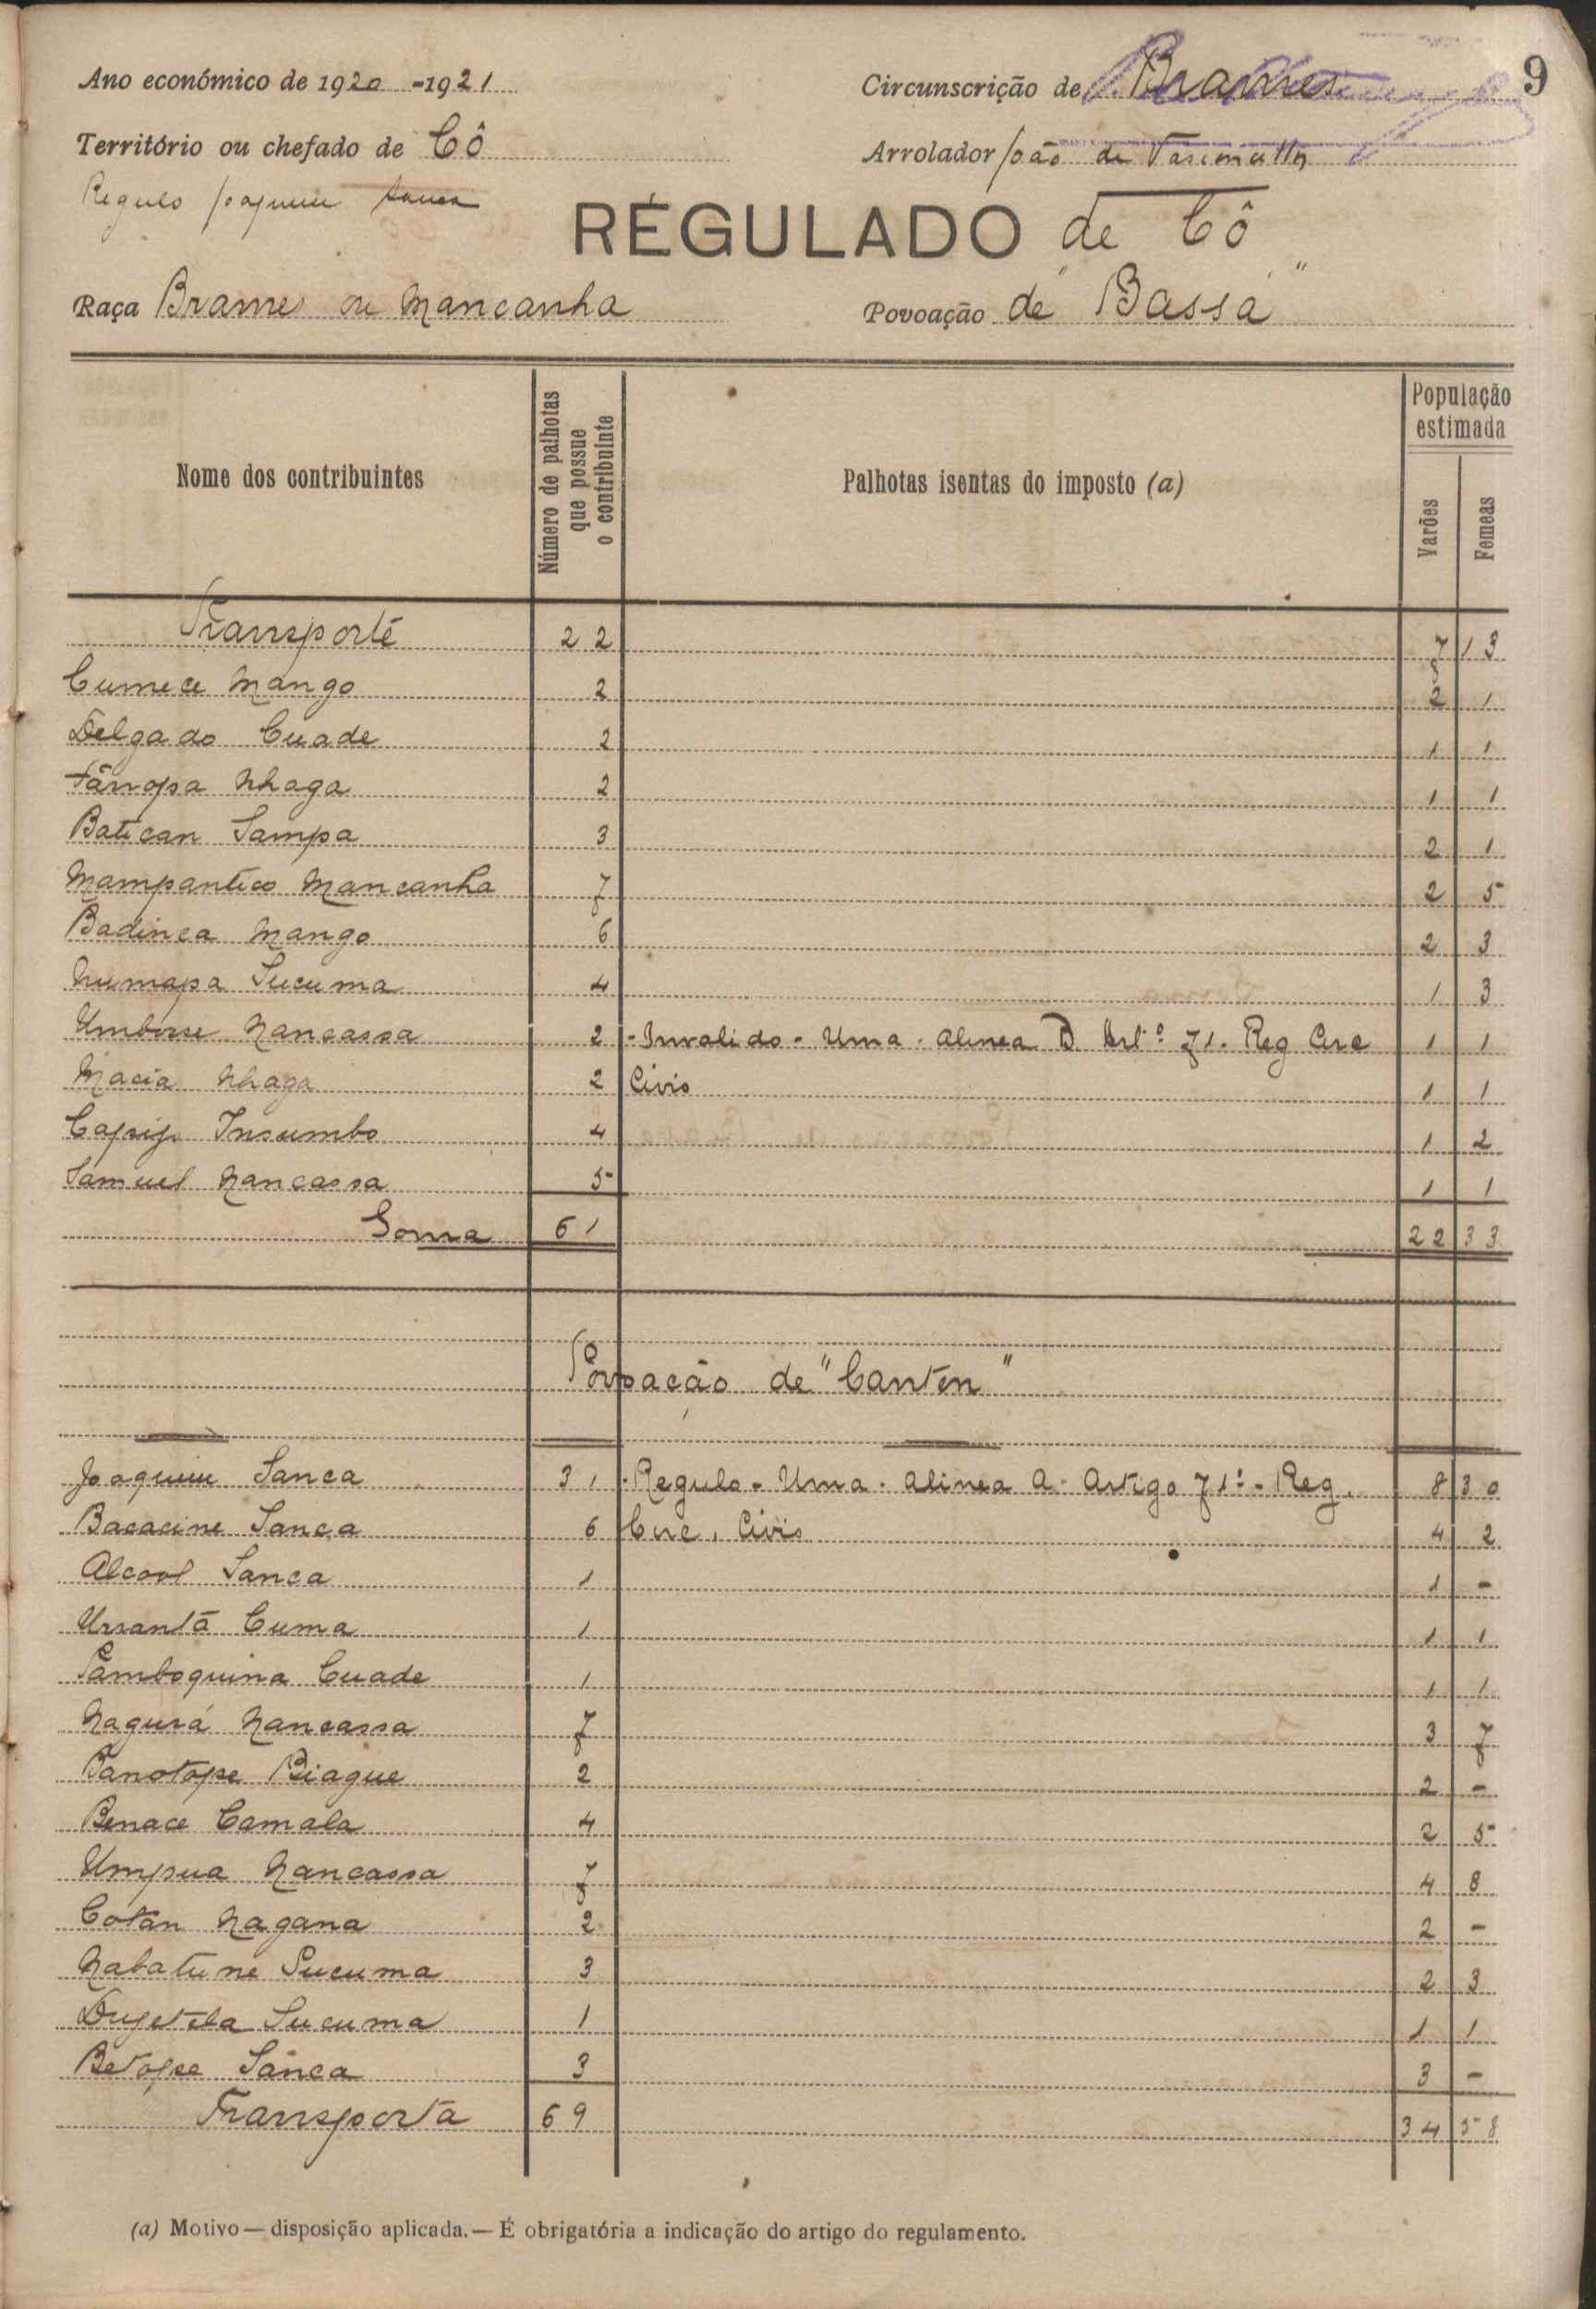 9
Ano económico de 1920-1921
Circunscrição de Brames
Território ou chefado de Cô
Arrolador João de Vasconcellos
Regulo Joaquim Sanca
REGULADO de Cô
Raça Brames ou Mancanha
Povoação de "Bassa"
Nome dos contribuintes
Número de palhotas que possue o contribuinte
Palhotas isentas do imposto (a)
População estimada
Varões
Femeas
Transporte 22 7 13
Cumece Mango 2 2 1
Delgado Cuade 2 1 1
Fânopa Nhaga 2 1 1
Batican Sampa 3 2 1
Mampantico Mancanha 7 2 5
Badinca Mango 6 2 3
Numapa Sucuma 4 1 3
Umbosse Nancassa 2 - Invalido - Uma - alinea D Artº 71 - Reg Circ 1 1
Macia Nhaga 2 Civis 1 1
Capip Insumbo 4 1 2
Samuel Nancassa 5 1 1
Soma 61 22 33
Povoação de "Canten"
Joaquim Sanca 31 - Regulo - Uma - alinea A - Artigo 71º - Reg. 8 30
Bacacine Sanca 6 Circ. Civis 4 2
Alcool Sanca 1 1 -
Urrantã Cuma 1 1 1
Pamboquina Cuade 1 1 1
Nagurá Nancassa 7 3 7
Banotope Biague 2 2 -
Benace Camala 4 2 5
Umpua Nancassa 7 4 8
Cotan Nagana 2 2 -
Nabatune Sucuma 3 2 3
Dujetela Sucuma 1 1 1
Betope Sanca 3 3 -
Transporta 69 34 58
(a) Motivo — disposição aplicada. — É obrigatória a indicação do artigo do regulamento.